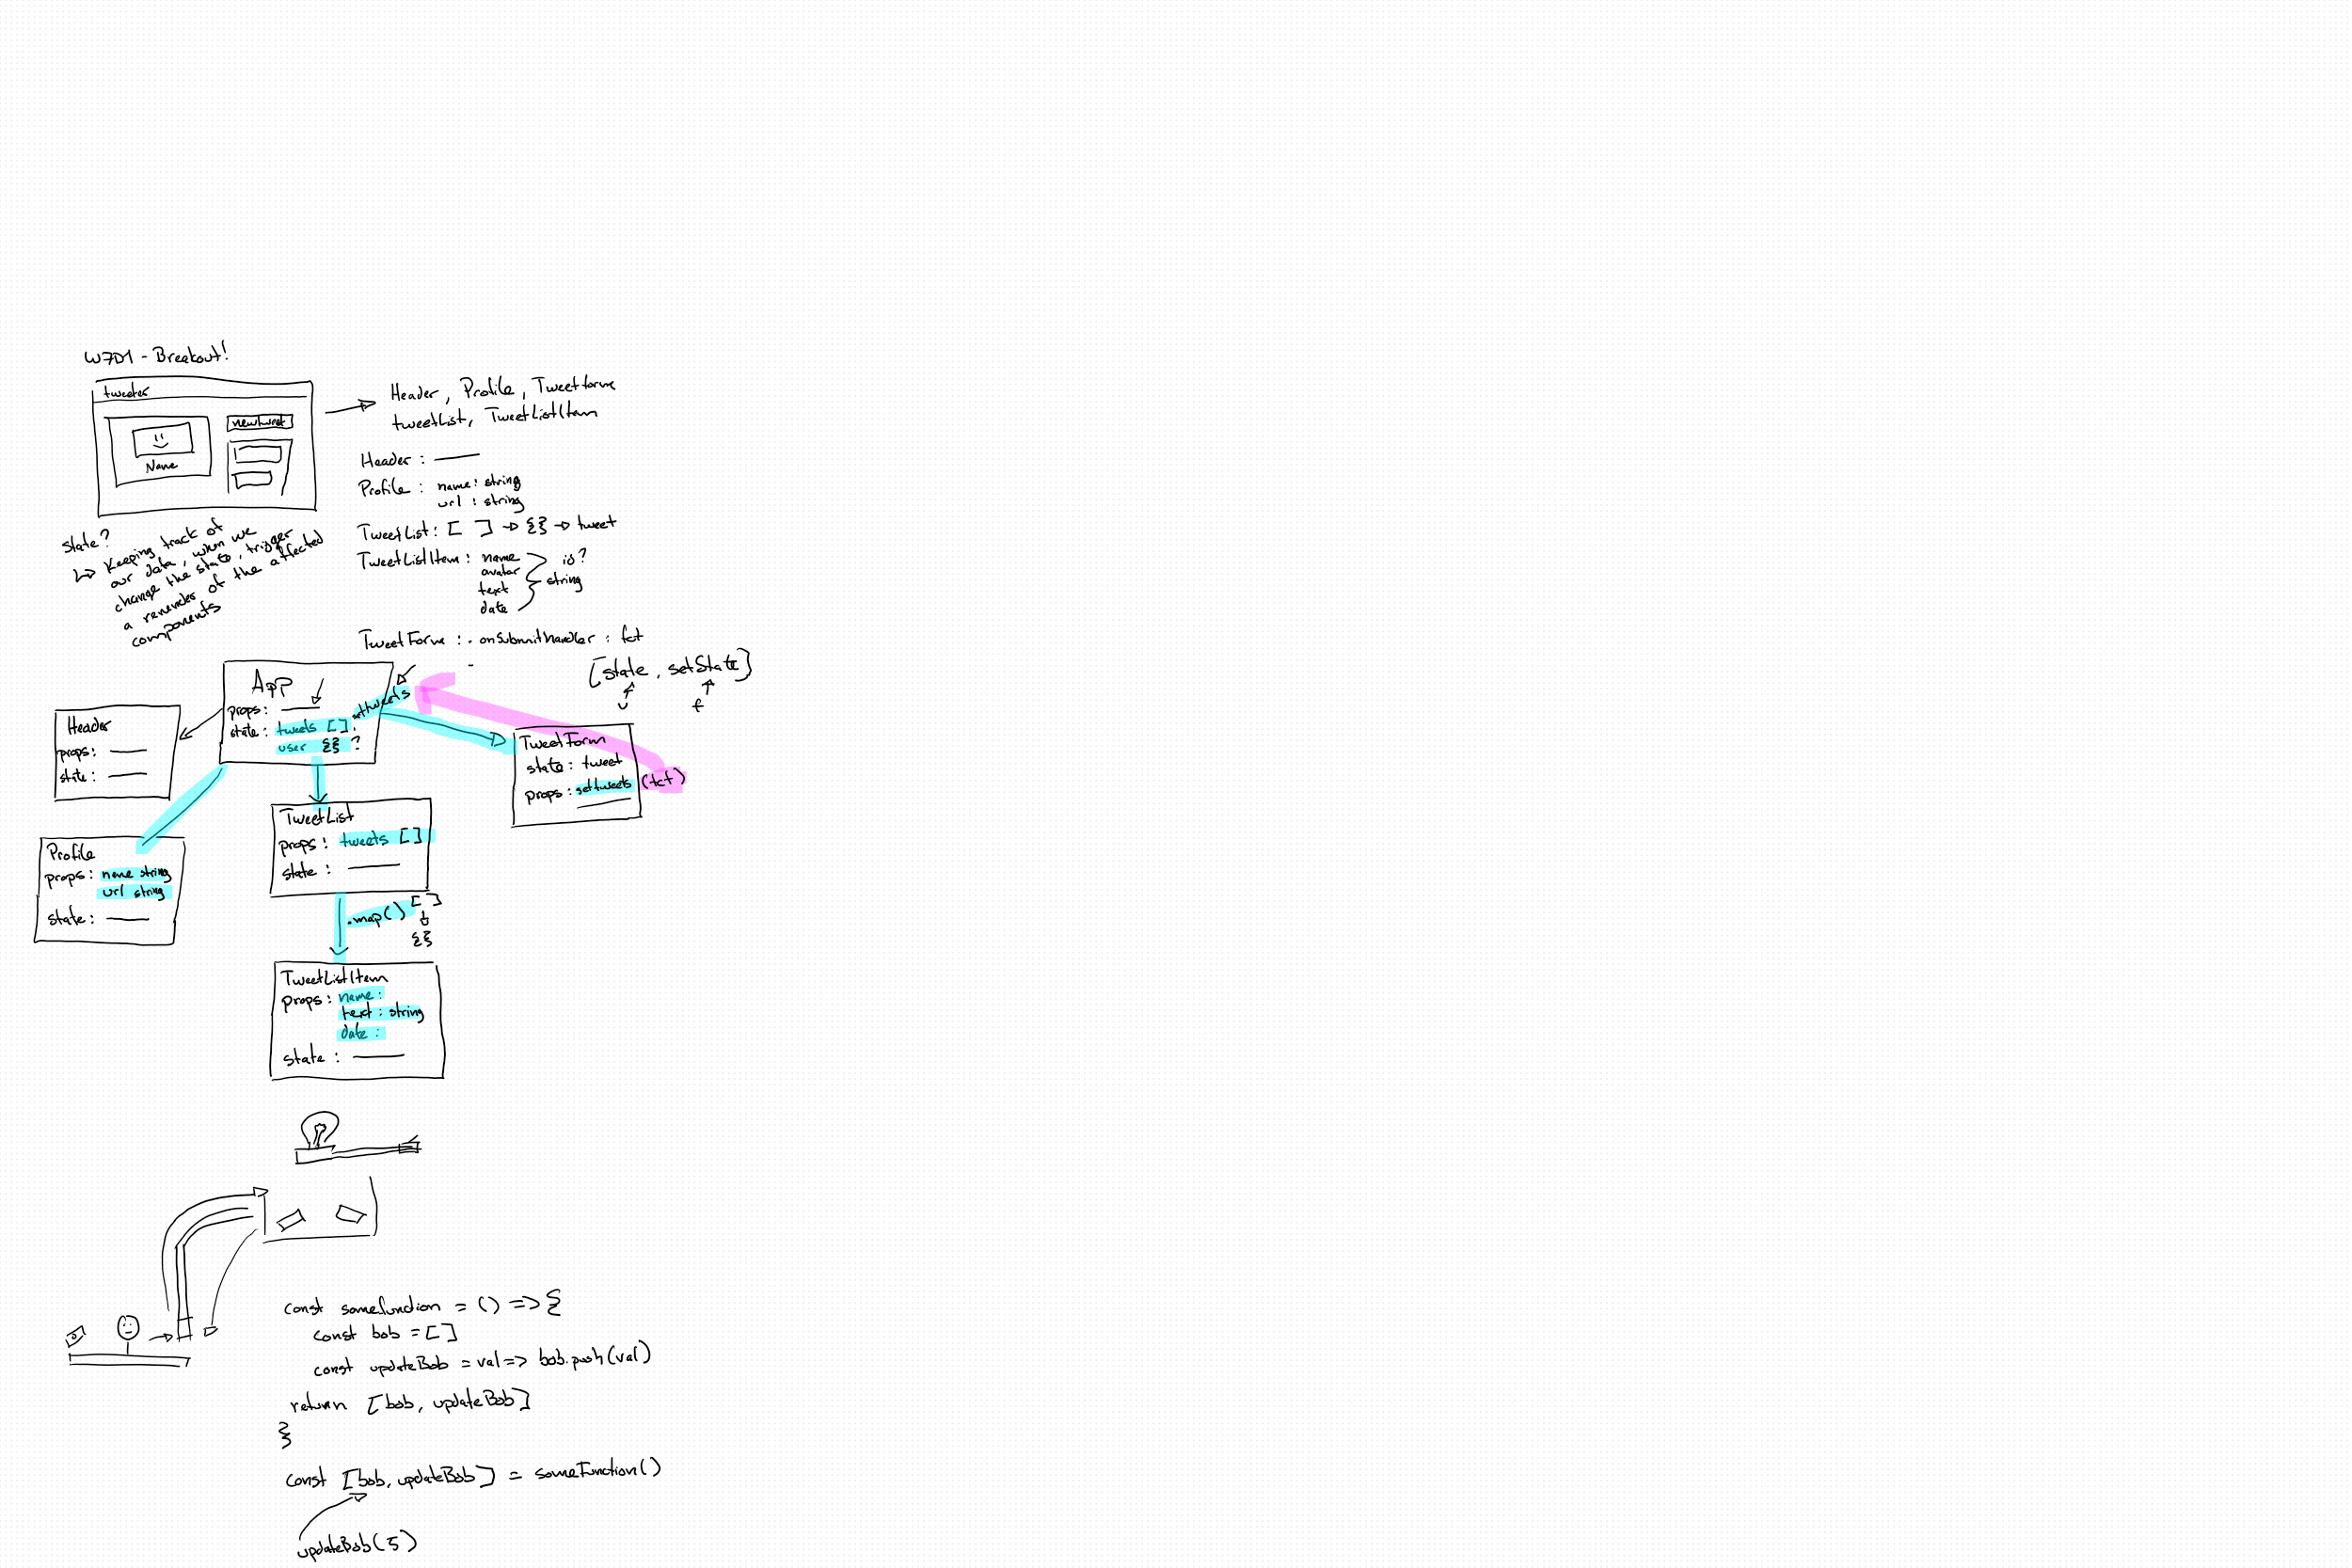 W7D1 - Breakout!
tweeter
newtweet
Name
Header, Profile, TweetForm
tweetList, TweetListItem
Header :
Profile : name: string
url : string
TweetList: [ ] → {} → tweet
TweetListItem : name
avatar
text
date
id?
string
TweetForm : . onSubmitHandler : fct
-
State?
↳ Keeping track of
our data, when we
change the state, trigger
a rerender of the affected
components
[state, setState]
v
f
App
props:
state: tweets [],
settweets
user {} ?
Header
props:
state:
TweetForm
state: tweet
props: settweets (tct)
Profile
props: name string
url string
state:
TweetList
props: tweets []
state:
.map() []
{}
TweetListItem
props: name:
text: string
date:
state:
const someFunction = () => {
const bob = []
const updateBob = val => bob.push(val)
return [bob, updateBob]
}
const [bob, updateBob] = someFunction()
updateBob(5)